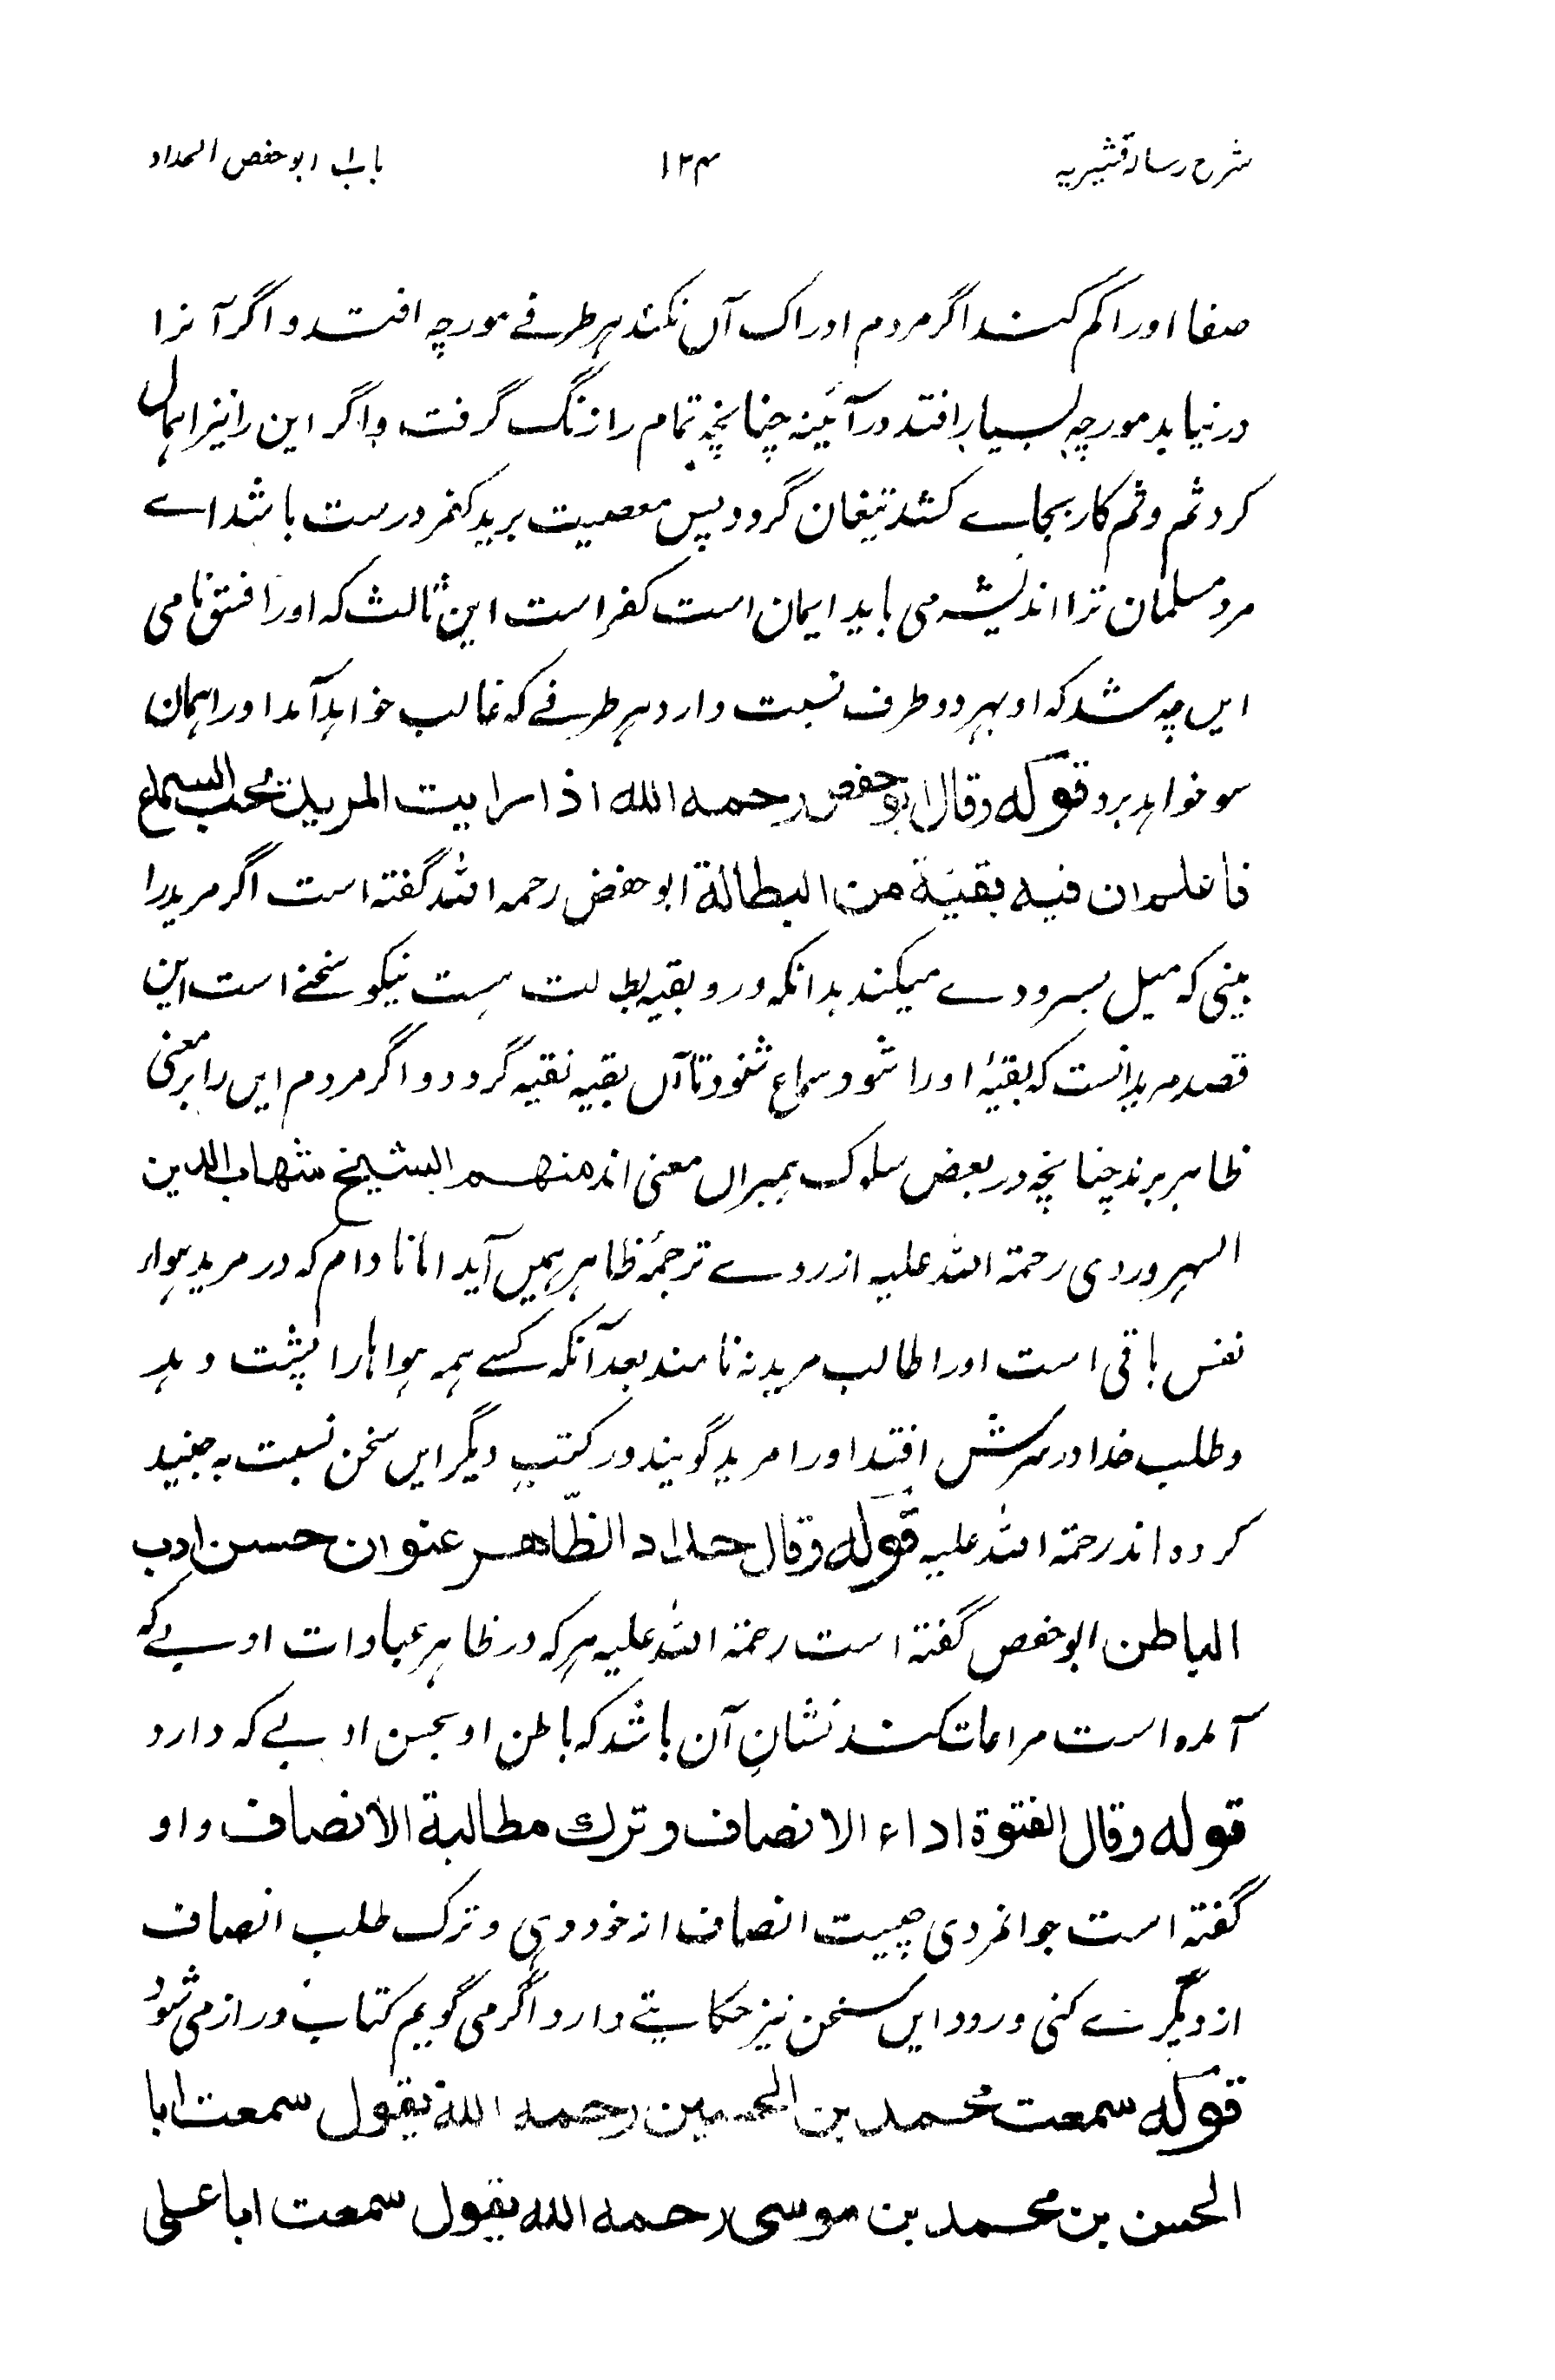 شرح رسالہ قشیریہ ۱۲۴ باب ابو حفص الحداد
صفا اورا کم کند اگر مردم ادراک آں نکند ہر طرفے مورچہ افتد و اگر آنرا
در نیابد مورچہ بسیار افتد در آئینہ چنانچہ تمام را زنگ گرفت و اگر این را نیز اہمال
کرد ثم و ثم کار بجاے کشد تیغان گردد پس معصیت برید کفر درست باشد اے
مرد مسلمان ترا اندیشہ می باید ایمان است کفر است این ثالث کہ اورا فسق نامی
ایں چہ شد کہ او بہر دو طرف نسبت دارد ہر طرفے کہ غالب خواہد آمد اورا ہمان
سو خواہد برد قولہ وقال ابو حفص رحمہ اللہ اذا رایت المرید یحب السماع
فاعلم ان فیہ بقیۃ من البطالۃ ابو حفص رحمہ اللہ گفتہ است اگر مرید را
بینی کہ میل بسرودے میکند بدانکہ درو بقیہ بطالت ہست نیکو سخنے است این
قصد مرید انست کہ بقیۂ اورا شود سماع شنود تا آں بقیہ نقیہ گردد و اگر مردم ایں را بر معنی
ظاہر برند چنانچہ در بعض سلوک ہمبراں معنی اند منہم الشیخ شہاب الدین
السہروردی رحمۃ اللہ علیہ از روے ترجمۂ ظاہر ہمیں آید اما نادام کہ در مرید ہواء
نفس باقی است اورا طالب مرید نہ نامند بعد آنکہ کسے ہمہ ہواہا را پشت دہد
و طلب خدا در سرش افتد اورا مرید گویند در کتب دیگر ایں سخن نسبت بہ جنید
کردہ اند رحمۃ اللہ علیہ قولہ وقال حسن ادب الظاہر عنوان حسن ادب
الباطن ابو حفص گفتہ است رحمۃ اللہ علیہ ہر کہ در ظاہر عبادات ادبے کہ
آمدہ است مراعات کند نشانِ آن باشد کہ باطن او بحسن ادبے کہ دارد
قولہ وقال الفتوۃ اداء الانصاف و ترک مطالبۃ الانصاف و او
گفتہ است جوانمردی چیست انصاف از خود دہی و ترک طلب انصاف
از دیگرے کنی ورود ایں سخن نیز حکایتے دارد اگر می گویم کتاب دراز می شود
قولہ سمعت محمد بن الحسین رحمہ اللہ یقول سمعت ابا
الحسن بن محمد بن موسی رحمہ اللہ یقول سمعت ابا علی